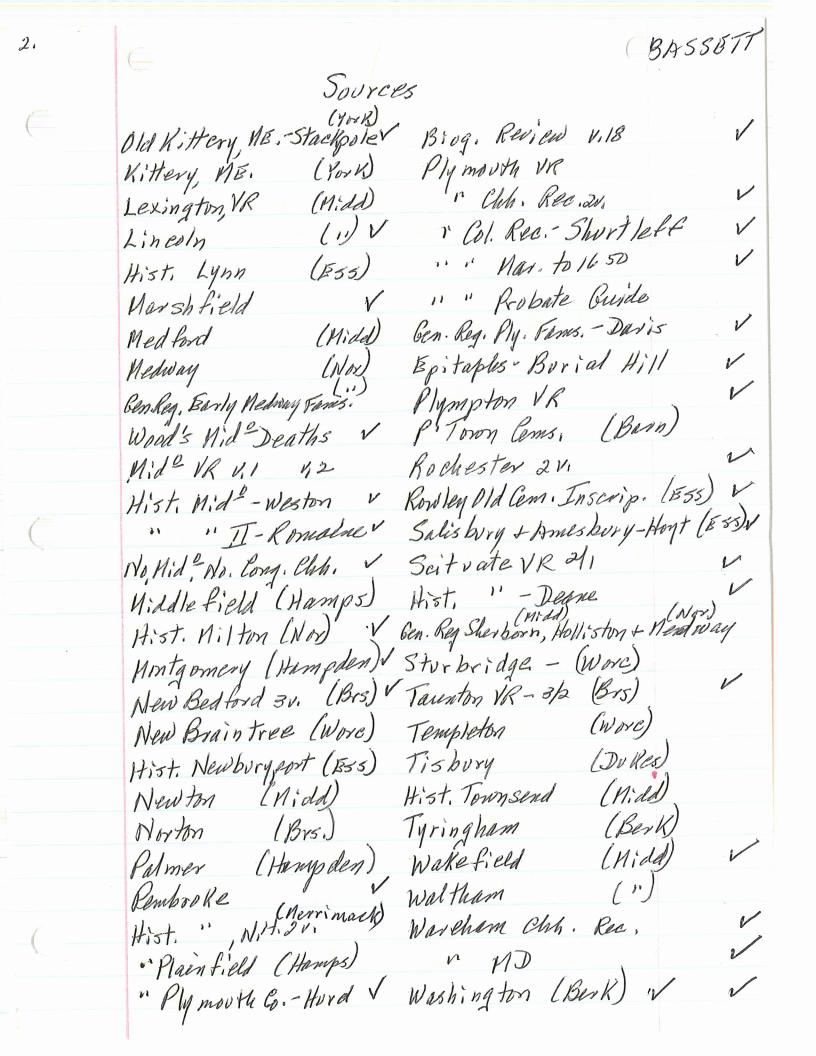 2.
BASSETT
Sources
(York)
Old Kittery, ME.-Stackpole ✓
Kittery, ME. (York)
Lexington, VR (Midd)
Lincoln (") ✓
Hist. Lynn (Ess)
Marshfield ✓
Medford (Midd)
Medway (Nor)
Gen. Reg. Early Medway Fams. (")
Wood's Mid⁰ Deaths ✓
Mid⁰ VR v.1 v.2
Hist. Mid⁰ - Weston ✓
" " II - Romaine ✓
No. Mid⁰, No. Cong. Chh. ✓
Middlefield (Hamps)
Hist. Milton (Nor) ✓
Montgomery (Hampden) ✓
New Bedford 3v. (Brs) ✓
New Braintree (Worc)
Hist. Newburyport (Ess)
Newton (Midd)
Norton (Brs.)
Palmer (Hampden)
Pembroke ✓
Hist. ", N.H. 2v. (Merrimack)
" Plainfield (Hamps)
" Plymouth Co. - Hurd ✓
Biog. Review v.18 ✓
Plymouth VR
" Chh. Rec. 2v. ✓
" Col. Rec. - Shurtleff ✓
" " Mar. to 1650 ✓
" " Probate Guide
Gen. Reg. Ply. Fams. - Davis ✓
Epitaples - Burial Hill ✓
Plympton VR ✓
P'Town Cems. (Barn)
Rochester 2v. ✓
Rowley Old Cem. Inscrip. (Ess) ✓
Salisbury + Amesbury - Hoyt (Ess) ✓
Scituate VR 2/1 ✓
Hist. " - Deane ✓
(Midd) (Nor)
Gen. Reg Sherborn, Holliston + Medway
Sturbridge - (Worc)
Taunton VR - 3/2 (Brs) ✓
Templeton (Worc)
Tisbury (Dukes)
Hist. Townsend (Midd)
Tyringham (Berk)
Wakefield (Midd) ✓
Waltham (")
Wareham Chh. Rec. ✓
" MD ✓
Washington (Berk) ✓ ✓